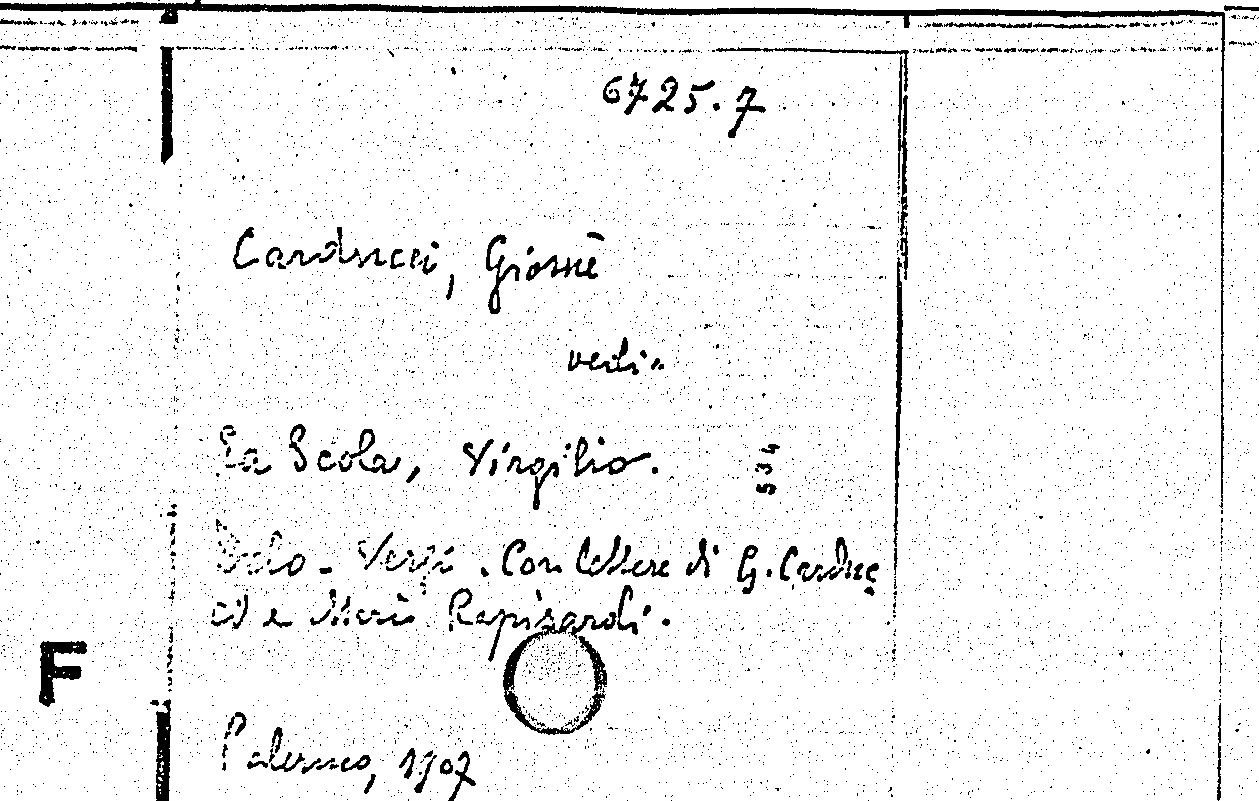 6725.7
Carducci, Giosuè
vedi
La Scola, Virgilio.
534
Versi. Con lettere di G. Carduc
ci e Mario Rapisardi.
F
Palermo, 1907